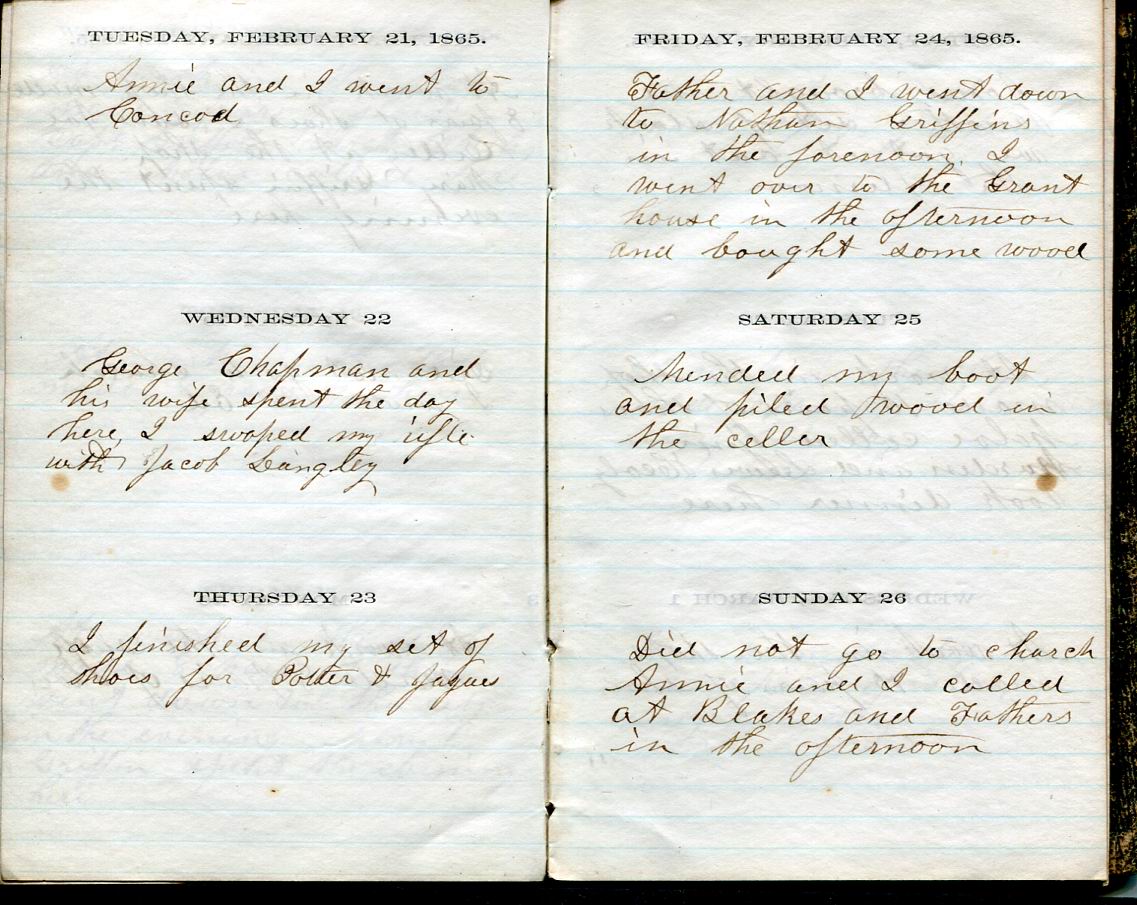 TUESDAY, FEBRUARY 21, 1865.
Annie and I went to
Concod
WEDNESDAY 22
George Chapman and
his wife spent the day
here, I swoped my rifle
with Jacob Langley
THURSDAY 23
I finished my set of
shoes for Potter & Jaques
FRIDAY, FEBRUARY 24, 1865.
Father and I went down
to Nathan Griffins
in the forenoon. I
went over to the Grant
house in the afternoon
and bought some wood
SATURDAY 25
Mended my boot
and piled wood in
the celler
SUNDAY 26
Did not go to church
Annie and I called
at Blakes and Fathers
in the afternoon